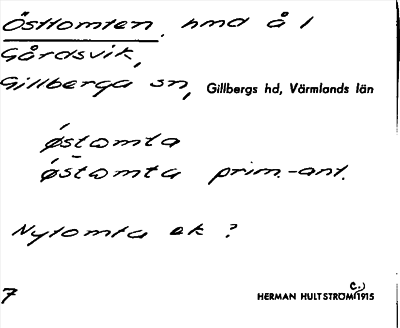 Östtomten. hmd å 1
Gårdsvik,
Gillberga sn, Gillbergs hd, Värmlands län
östomta
östomta prim.-ant.
Nytomta ek ?
7 HERMAN HULTSTRÖM (c.) 1915